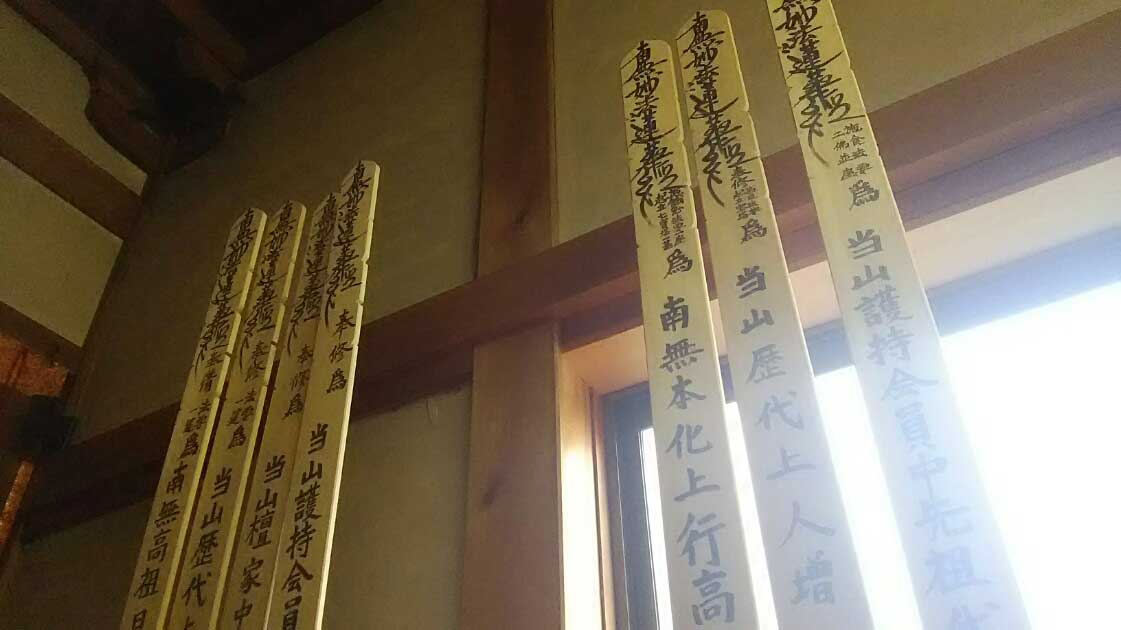 無妙法蓮華経 爲 当山護持会員中先祖代
南無妙法蓮華経 奉修 爲 当山歴代上人増
南無妙法蓮華経 爲 南無本化上行高
南無妙法蓮華経 奉修爲 当山護持会員
南無妙法蓮華経 奉修爲 当山檀家中
南無妙法蓮華経 奉修 爲 当山歴代
南無妙法蓮華経 奉修 爲 南無高祖日